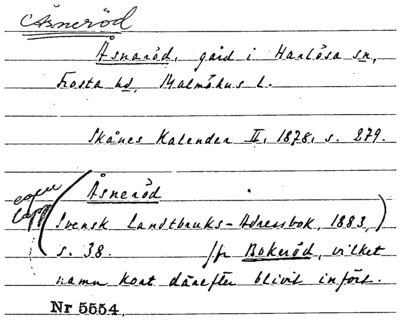 Åsneröd
Åsnaröd, gård i Harlösa sn,
Frosta hd, Malmöhus l.
Skånes Kalender II, 1878, s. 279.
Åsneröd
egen
lapp
Svensk Landtbruks-Adressbok, 1883,
s. 38. /fr Bokeröd, vilket
namn kort därefter blivit infört.
Nr 5554.